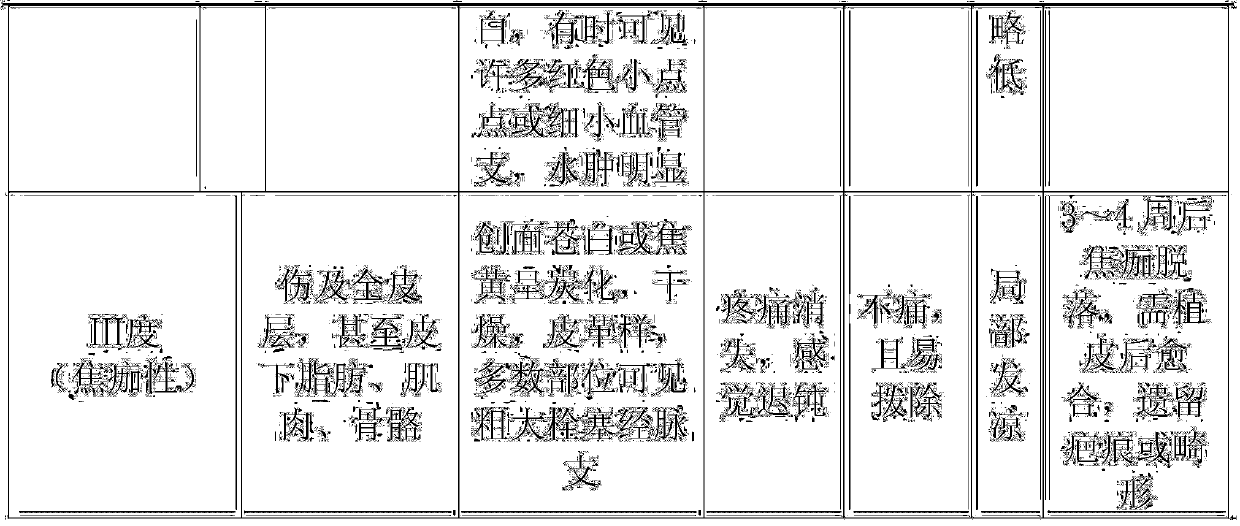 白，有时可见
许多红色小点
点或细小血管
支，水肿明显
略
低
III度
（焦痂性）
伤及全皮
层，甚至皮
下脂肪、肌
肉、骨骼
创面苍白或焦
黄呈炭化，干
燥，皮革样，
多数部位可见
粗大栓塞经脉
支
疼痛消
失，感
觉迟钝
不痛，
且易
拨除
局
部
发
凉
3～4周后
焦痂脱
落，需植
皮后愈
合，遗留
疤痕或畸
形